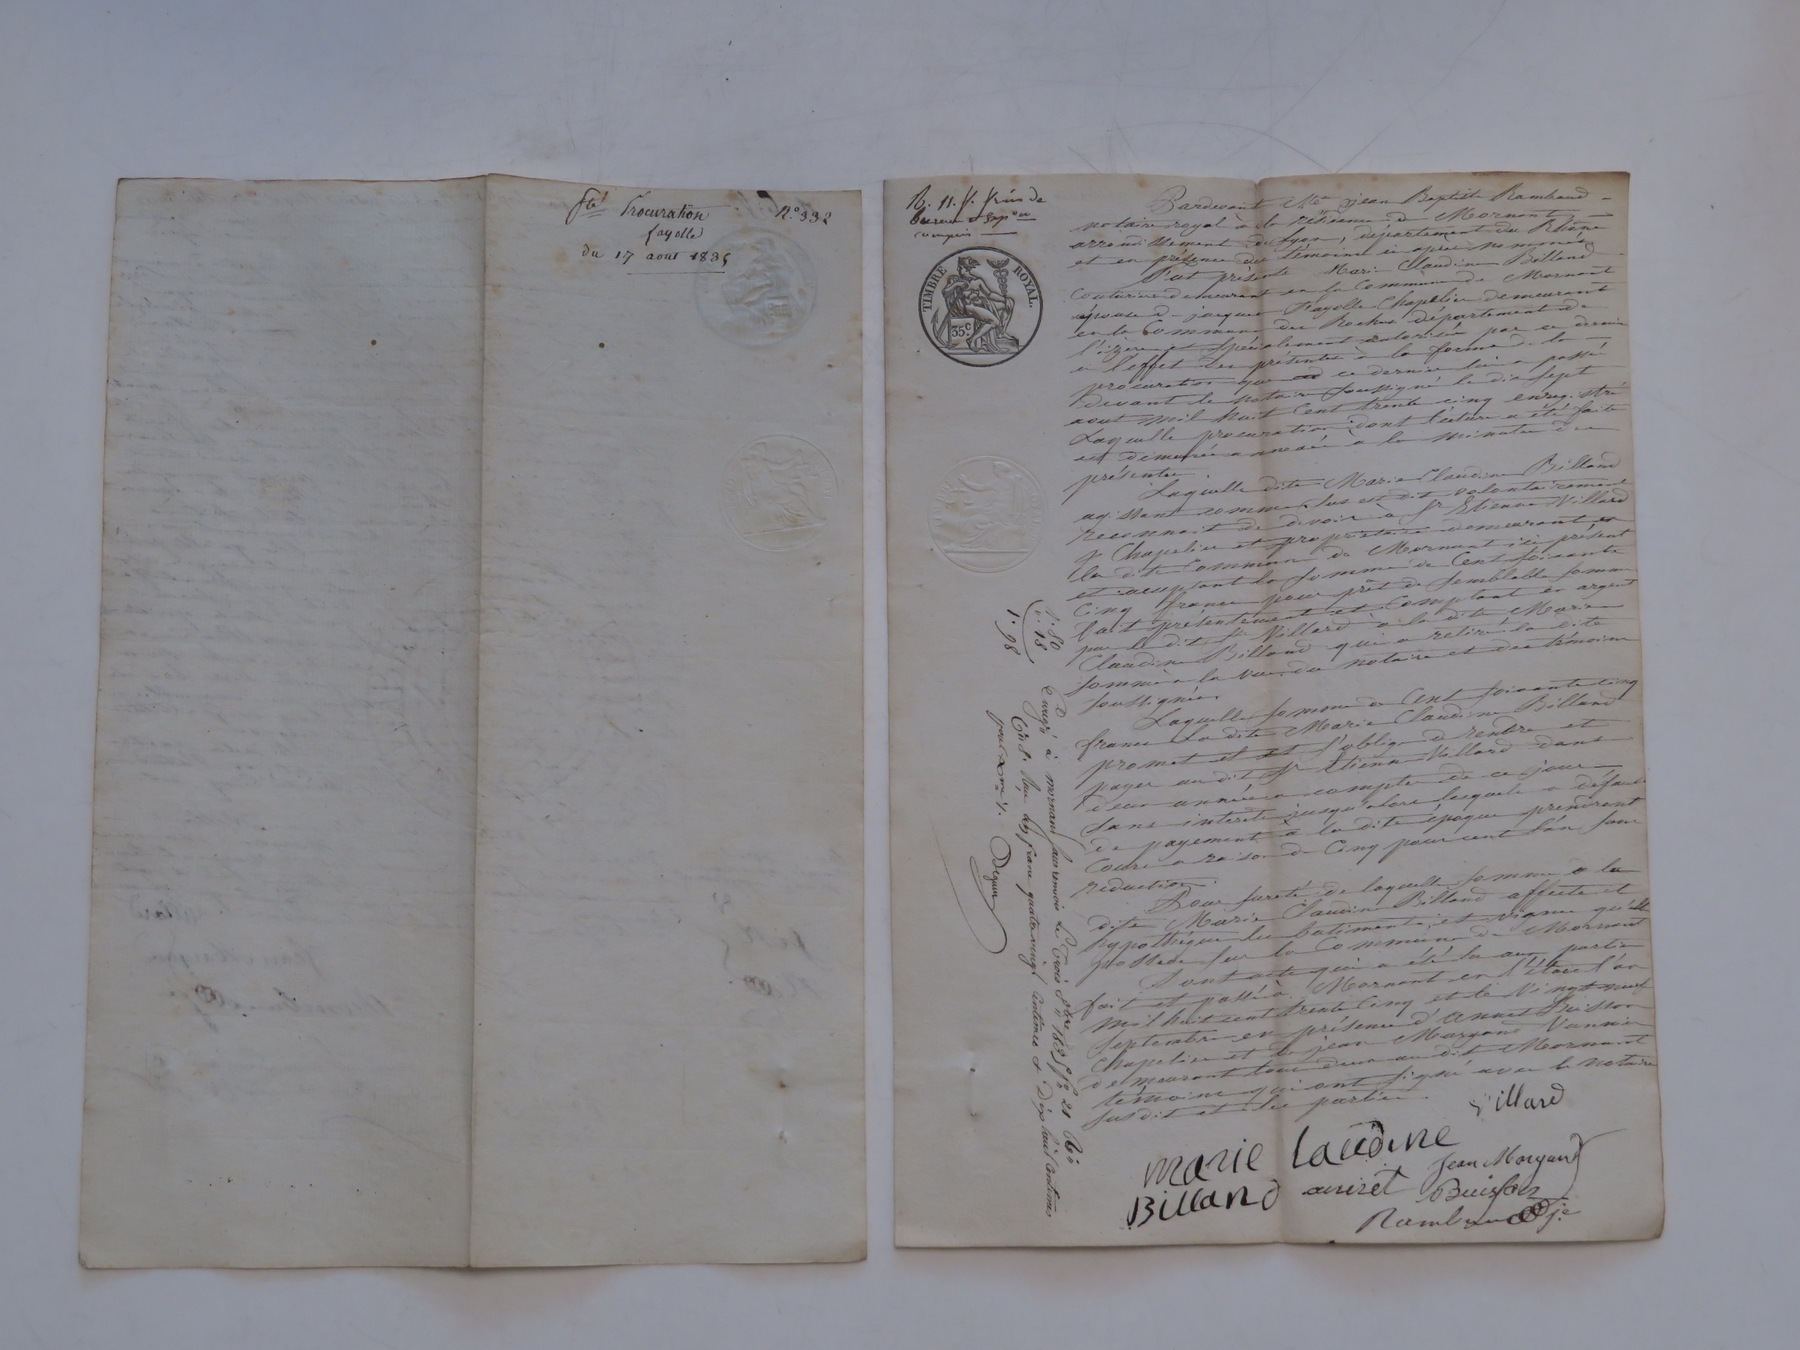 Procuration N.° 332
fayolle
du 17 aout 1835
R. 11. f. Prix de
compris
TIMBRE ROYAL.
35.c
Pardevant Me jean Baptiste Rambaud
notaire royal à la résidence de Mornant
arrondissement de Lyon, département du Rhône
et en présence des témoins ci après nommés
fut présente Marie Claudine Billand
Couturiere demeurant en la Commune de Mornant
épouse de jacques Fayolle Chapelier demeurant
en la Commune des Roches département de
l'izère et spécialement autorisée par ce dernier
à l'effet des présentes à la forme de la
procuration que ce dernier lui a passé
devant le notaire soussigné le dix sept
aout mil huit Cent trente cinq enregistré
Laquelle procuration dont lecture a été faite
est demeurée annexée à la minute des
présentes.
Laquelle dite Marie Claudine Billand
agissant comme sus est dit volontairement
reconnait de devoir à Sr Etienne Villard
Chapelier et propriétaire demeurant en
la dite Commune de Mornant ici présent
et acceptant la somme de Cent soixante
Cinq francs pour prêt de semblable somme
fait présentement et Comptant en argent
par le dit Sr Villard à la dite Marie
Claudine Billand qui a retiré la dite
somme à la vue du notaire et des témoins
soussignés.
Laquelle somme de Cent soixante cinq
francs la dite Marie Claudine Billand
promet et s'oblige de rendre et
payer au dit Sr Etienne Villard dans
deux années à compter de ce jour
sans interets jusqu'alors lesquels a défaut
de payement à la dite époque prendront
Cours a raison de Cinq pour cent l'an sans
réduction.
Pour sureté de laquelle somme la
dite Marie Claudine Billand affecte et
hypothéque les batiments et vignes qu'elle
possede sur la Commune de Mornant
Dont acte qui a été lu aux parties
fait et passé à Mornant en l'étude l'an
mil huit cent trente Cinq et le Vingt neuf
septembre en présence d'annet Buisson
Chapelier et de jean Moryand Vannier
demeurant tous deux au dit Mornant
témoins qui ont signé avec le notaire
susdit et les parties.
1. 80
18
1. 98
Enregé à mornant le trois 8bre 1835 f° 21
un franc quatre vingt centimes et dix huit Centimes
Villard
marie laudine
Billand annet Jean Moryand
Buisson
Rambaud je